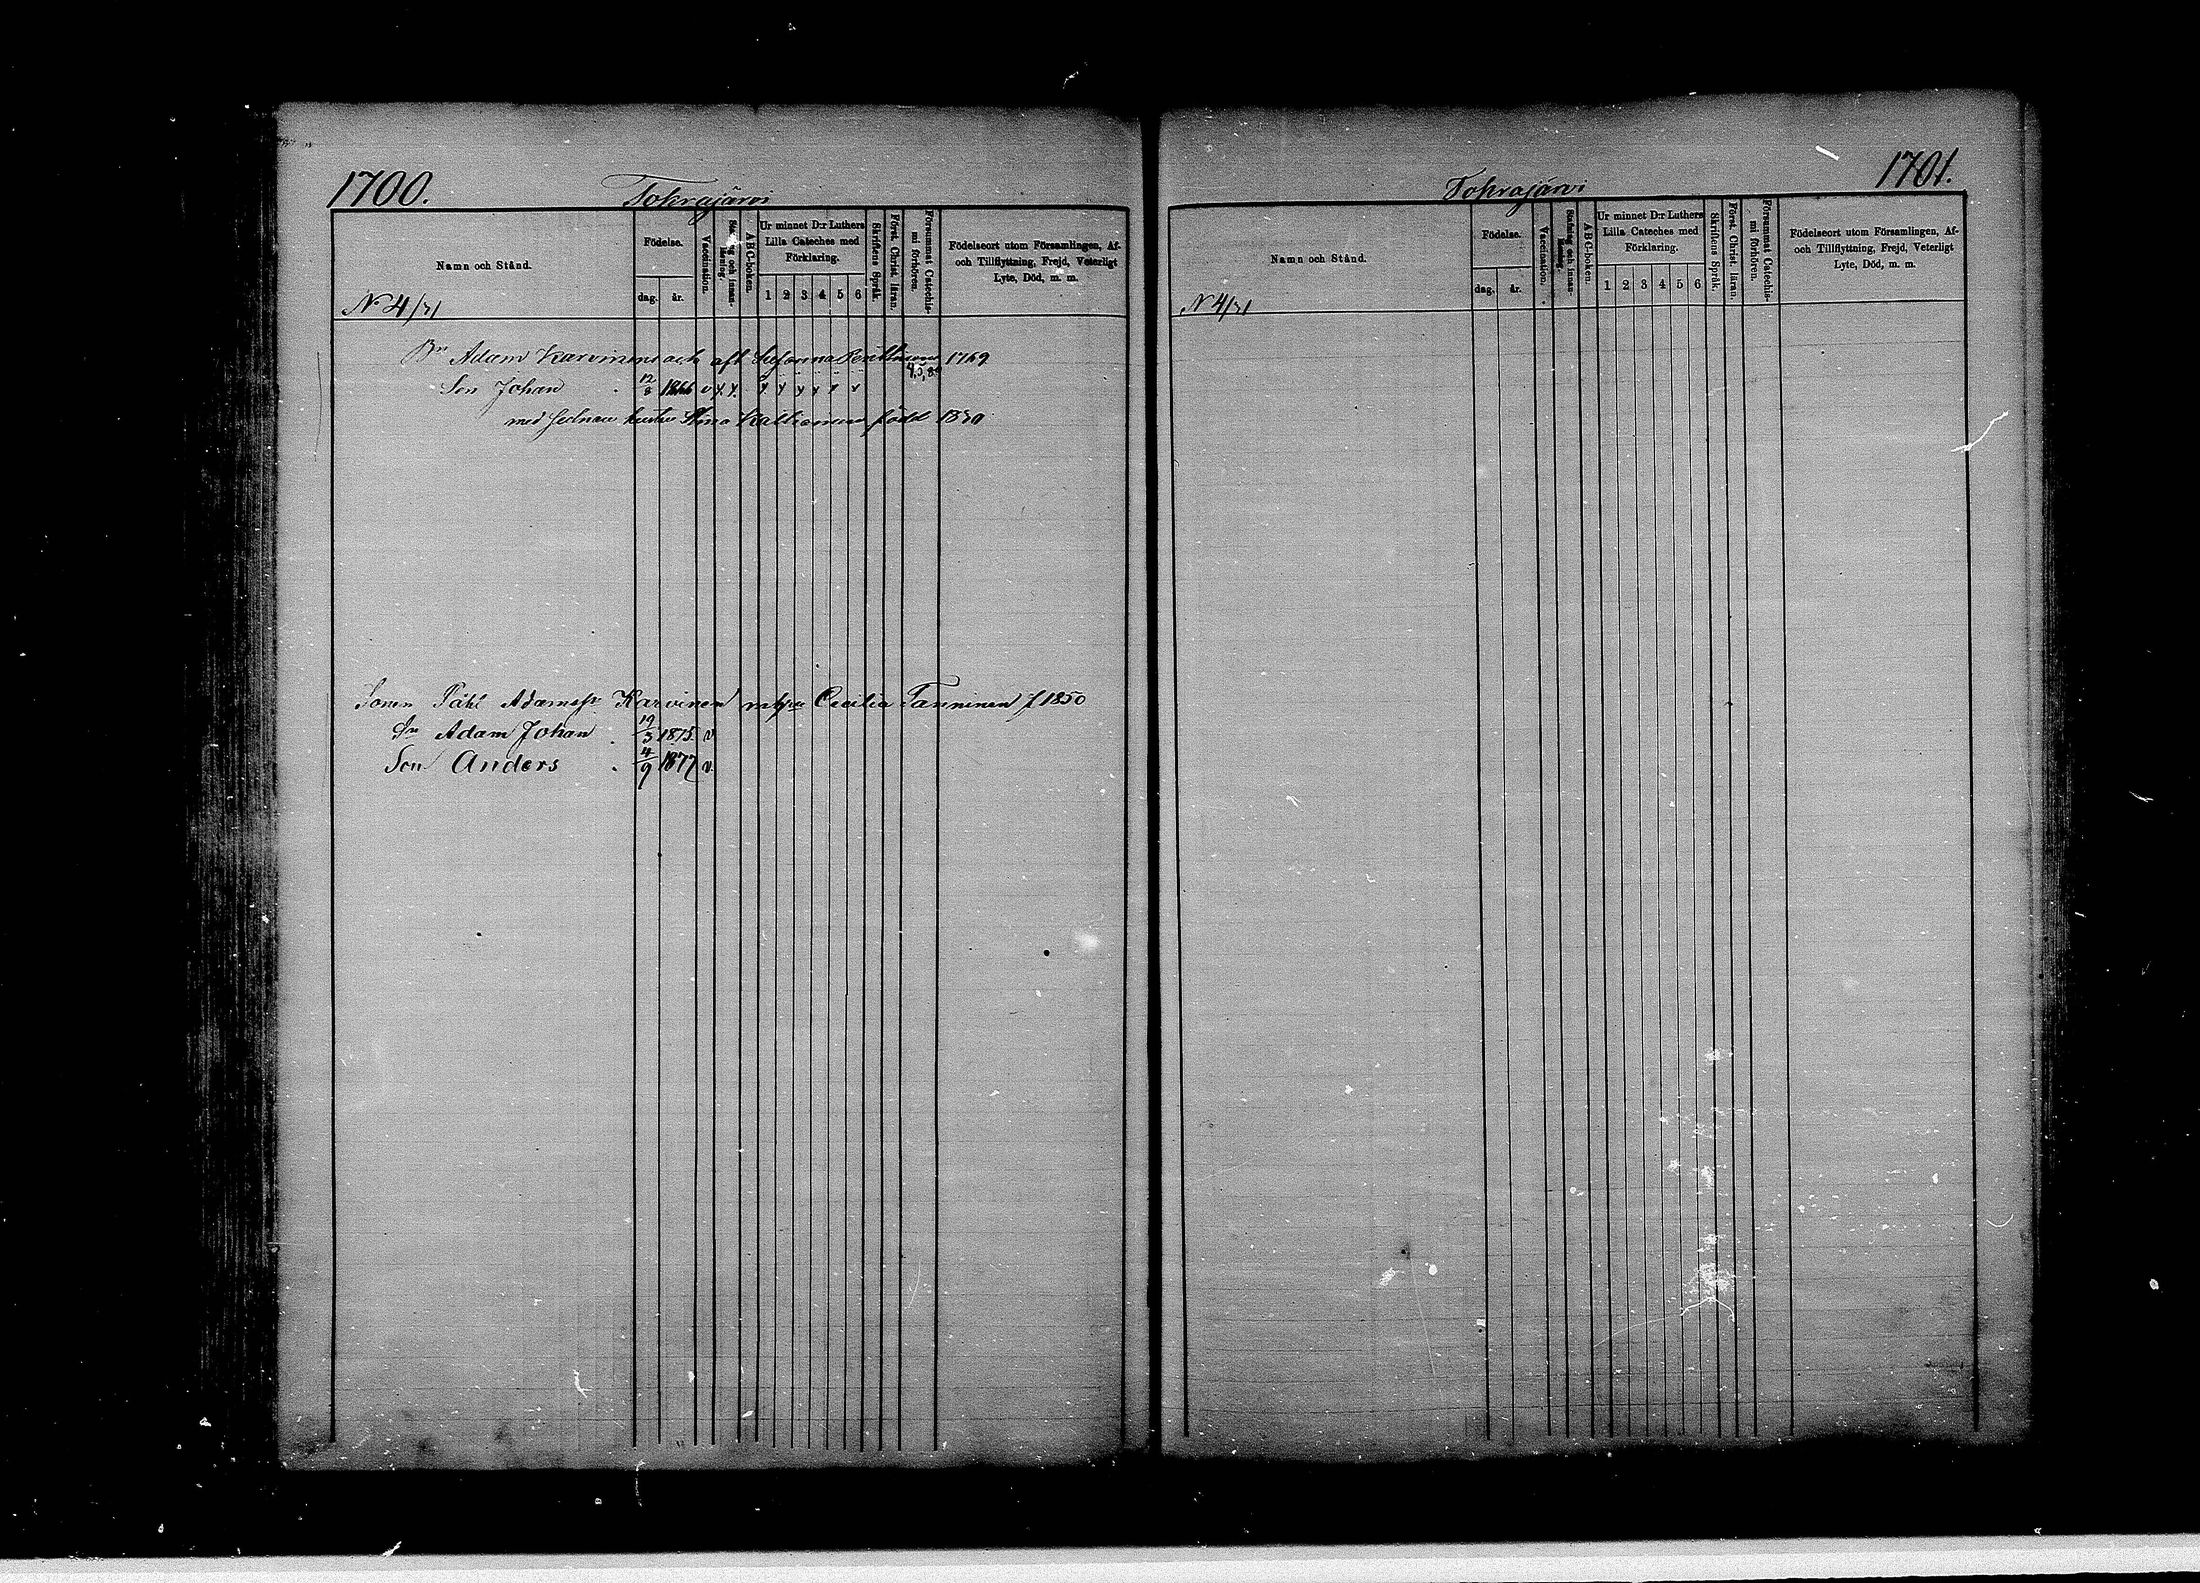 1700.
Tokrajärvi
Namn och Stånd.
Födelse.
dag.
år.
Vaccination.
ABC-boken.
Ur minnet D:r Luthers
Lilla Cateches med
Förklaring.
1 2 3 4 5 6
Skriftens Språk.
Först. Christ. läran.
Försummat Catechis-
mi förhören.
Födelseort utom Församlingen, Af-
och Tillflyttning, Frejd, Veterligt
Lyte, Död, m. m.
N 4/31
Bn Adam Karvinens och afl
Son Johan 12/8 1866 v x x
med hustru Stina Kallionen född 1830
Sonen Påhl Adamsfn Karvinen Cecilia Tanninen f 1850
Sn Adam Johan 19/3 1875 v
Son Anders 4/9 1877 v.
1701.
Tokrajärvi
Namn och Stånd.
Födelse.
dag.
år.
Vaccination.
Stafning och innan-
läsning.
ABC-boken.
Ur minnet D:r Luthers
Lilla Cateches med
Förklaring.
1 2 3 4 5 6
Skriftens Språk.
Först. Christ. läran.
Försummat Catechis-
mi förhören.
Födelseort utom Församlingen, Af-
och Tillflyttning, Frejd, Veterligt
Lyte, Död, m. m.
N 4/31